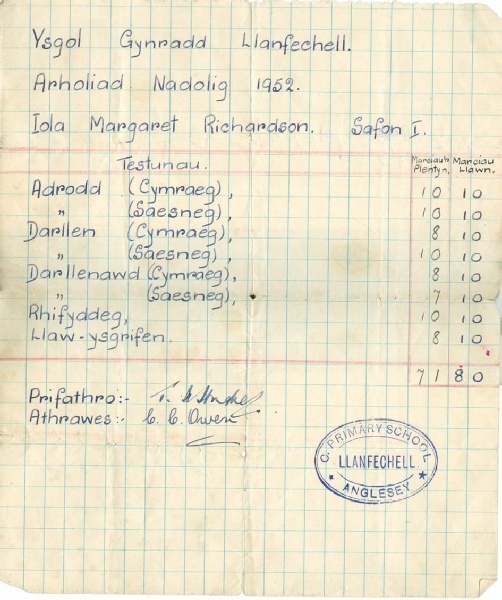 Ysgol Gynradd Llanfechell.
Arholiad Nadolig 1952.
Iola Margaret Richardson. Safon I.
Testunau. Marciau'r Plentyn. Marciau Llawn.
Adrodd (Cymraeg), 10 10
" (Saesneg), 10 10
Darllen (Cymraeg), 8 10
" (Saesneg), 10 10
Darllenawd (Cymraeg), 8 10
" (Saesneg), 7 10
Rhifyddeg, 10 10
Llaw-ysgrifen. 8 10
71 80
Prifathro:- Hughes
Athrawes:- C. C. Owen.
C. PRIMARY SCHOOL
LLANFECHELL
ANGLESEY